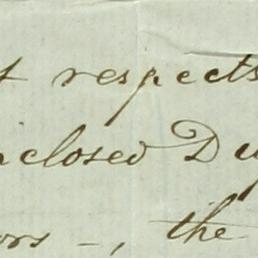 t respects
nclosed Du
ors -, the